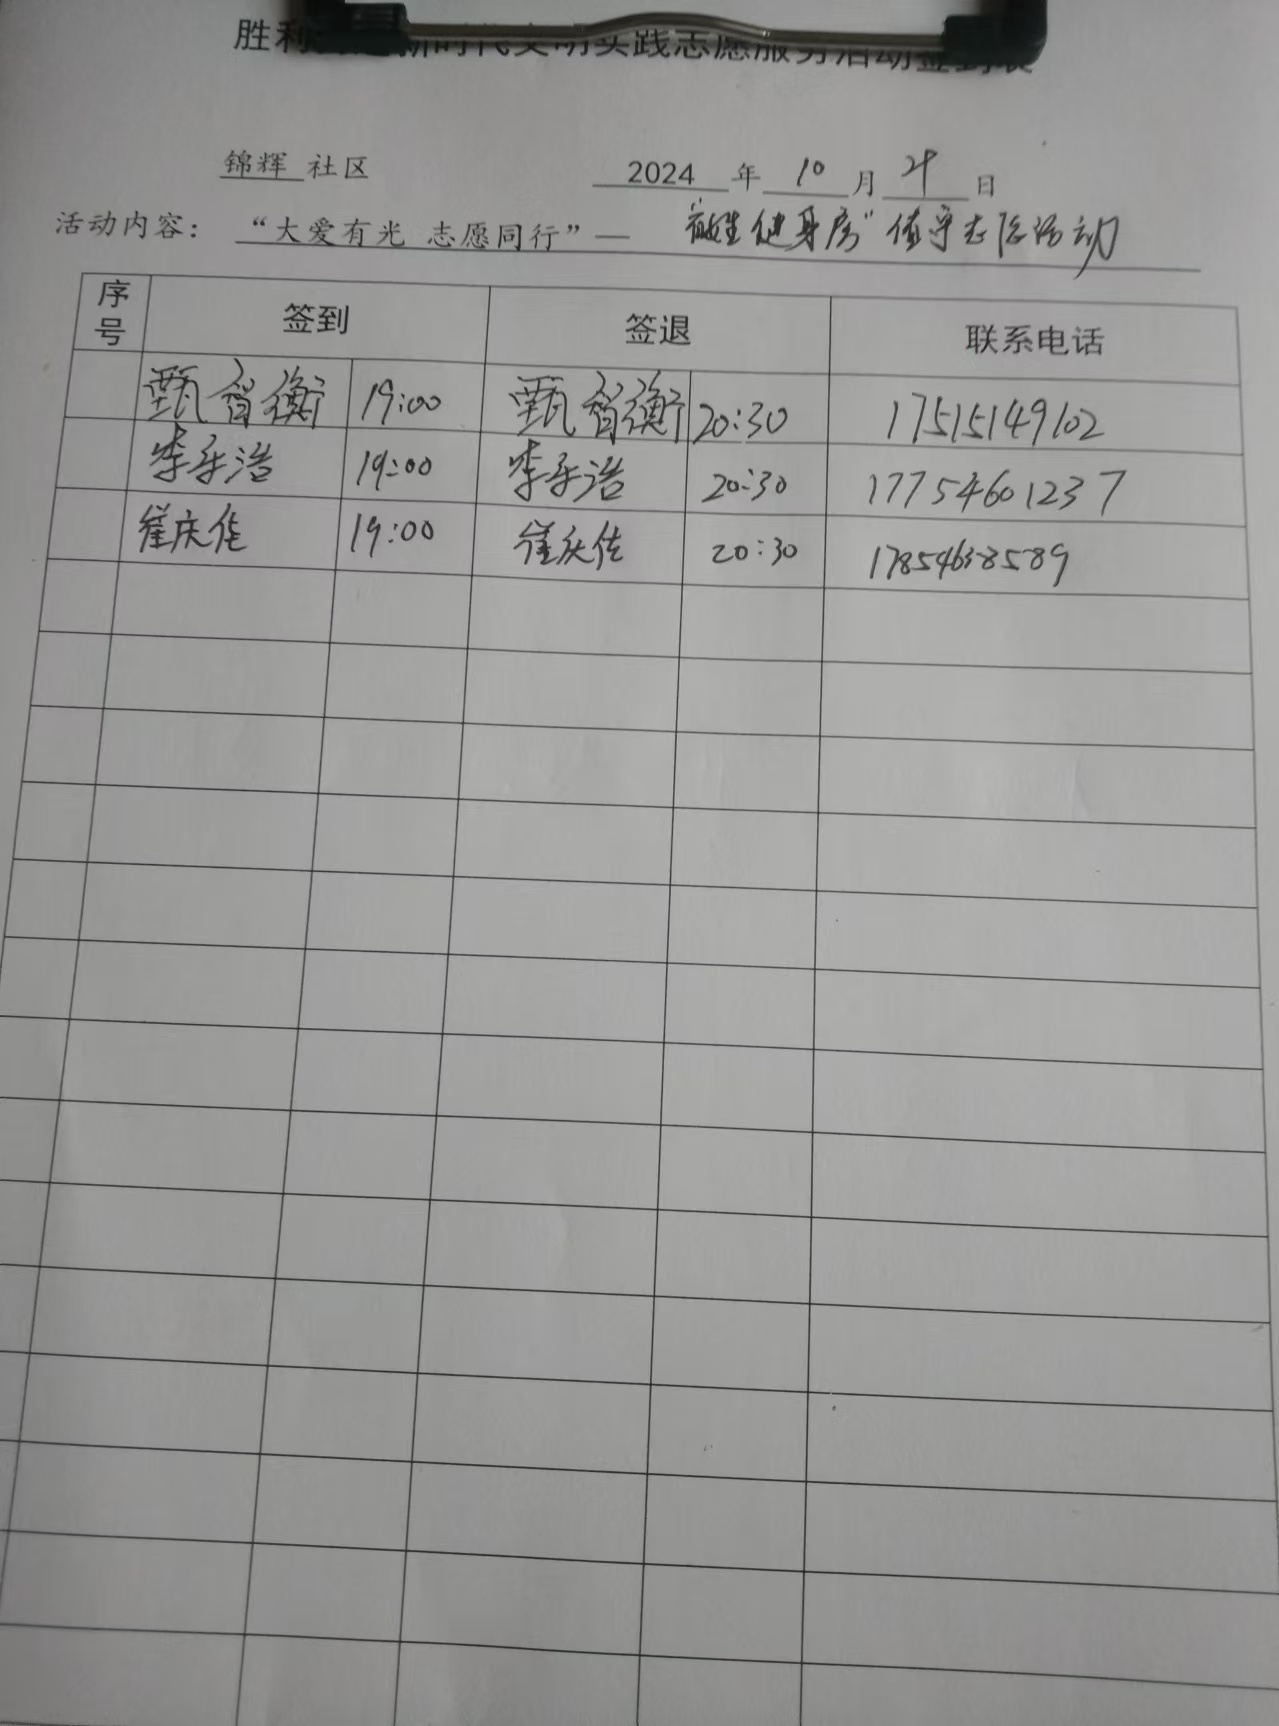 胜利 新时代文明实践志愿服务活动签到表
锦辉 社区 2024 年 10 月 日
活动内容： “大爱有光 志愿同行”— 健身房”值守志愿活动
序号 签到 签退 联系电话
甄智衡 19:00 甄智衡 20:30 17515149102
李乐浩 19:00 李乐浩 20:30 17754601237
崔庆佳 19:00 崔庆佳 20:30 17854638589